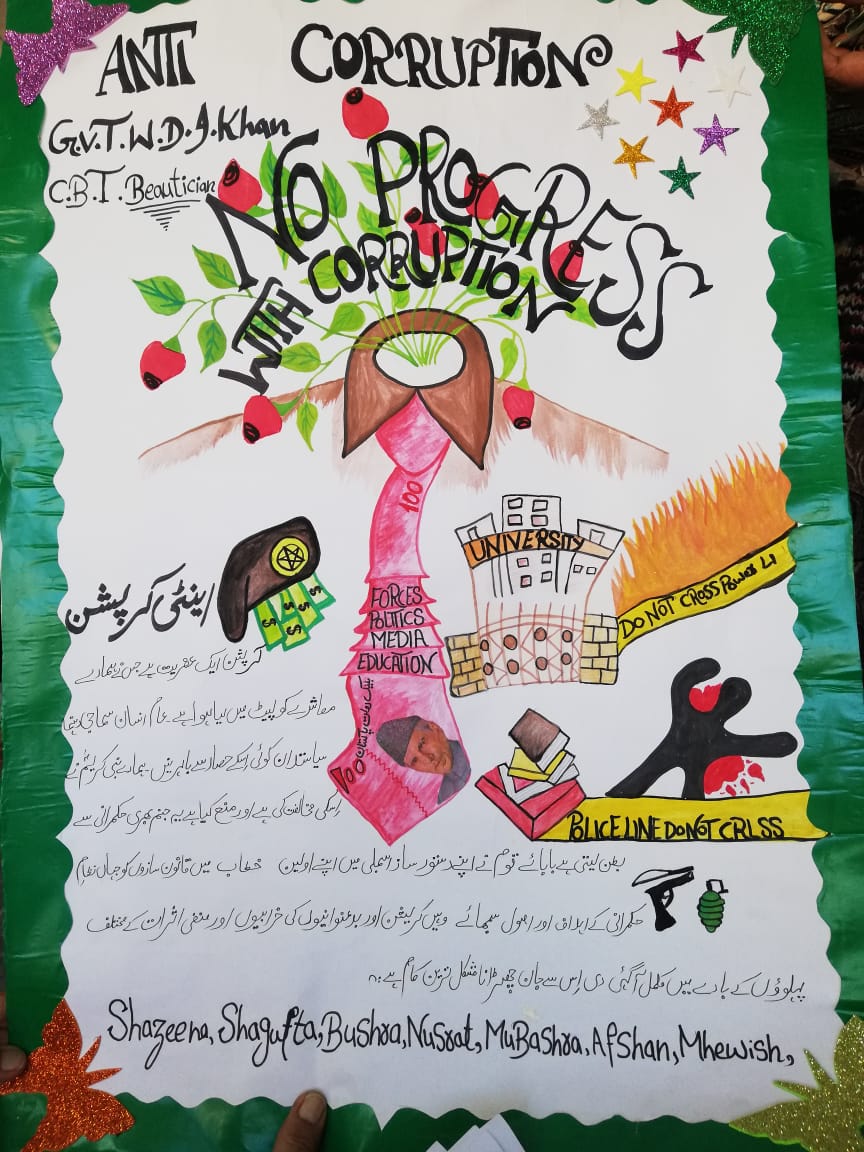 ANTI CORRUPTION
G.V.T.W.D.I.Khan
C.B.T. Beautician
NO PROGRESS
WITH CORRUPTION
100
UNIVERSITY
DO NOT CROSS POWER LI
FORCES
POLITICS
MEDIA
EDUCATION
بینک دولت پاکستان
100
$ $ $ $
اینٹی کرپشن
کرپشن ایک عفریت ہے جس نے ہمارے
معاشرے کو لپیٹ میں لیا ہوا ہے عام انسان سماجی
سیاستدان کوئی اسکے حصار سے باہر نہیں ہمارے نبی کریمؐ نے
اسکی مخالفت کی ہے اور منع کیا ہے یہ جنم بھری حکمرانی سے
POLICE LINE DO NOT CRLSS
بطن لیتی ہے بابائے قوم نے اپنے دستور ساز اسمبلی میں اپنے اولین خطاب میں قانون سازوں کو جہاں نظام
حکمرانی کے اہداف اور اصول سمجھائے وہیں کرپشن اور بدعنوانیوں کی خرابیوں اور منفی اثرات کے مختلف
پہلوؤں کے بارے میں مکمل آگہی دی اس سے جان چھڑانا مشکل ترین کام ہے
Shazeena, Shagufta, Bushra, Nusrat, MuBashra, Afshan, Mhewish,